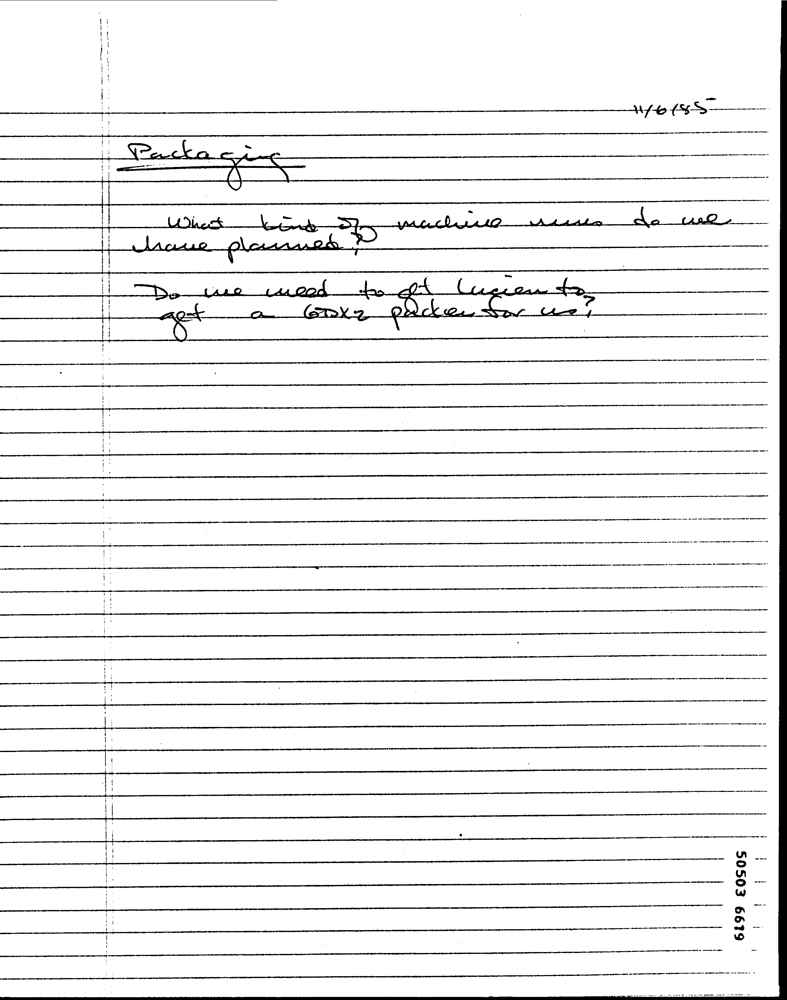 11/6/85
Packaging
What kind of machine runs do we
have planned?
Do we need to get Lucien to
get a GDX2 packer for us?
50503 6619